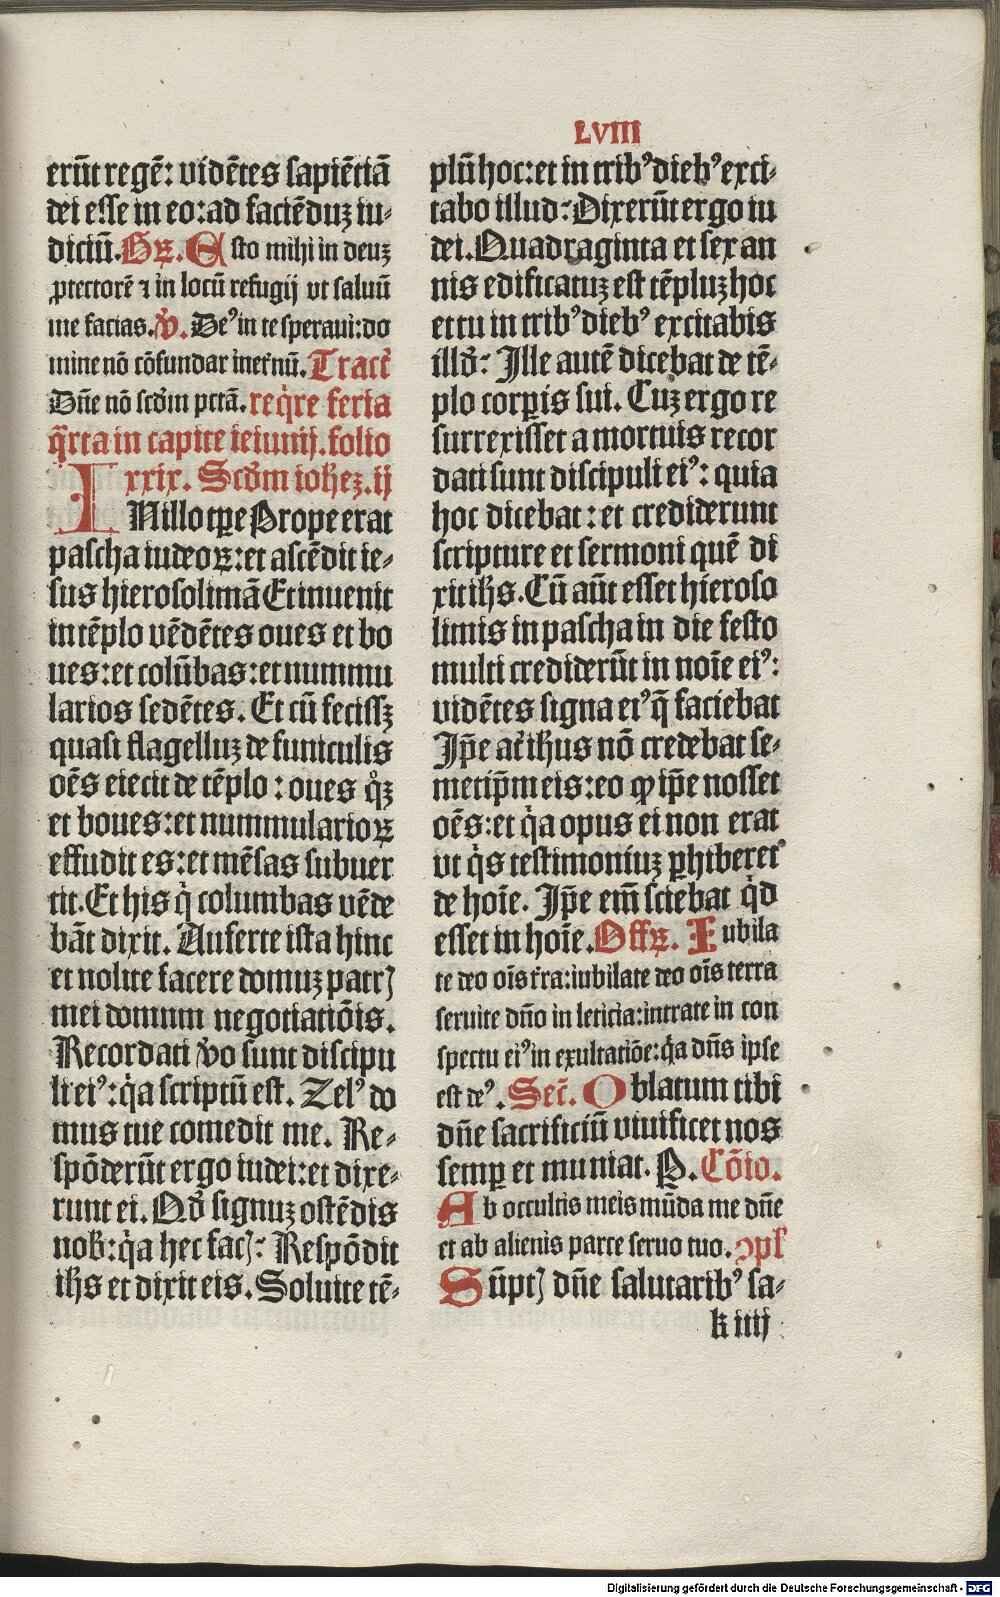 LVIII
erūt regē: vidētes sapiētiā
dei esse in eo: ad faciēduʒ iu-
diciū. Gꝝ. Esto mihi in deuʒ
ꝓtectorē ⁊ in locū refugij vt saluū
me facias. V̄. Deꝰ in te speraui: do
mine nō cōfundar ineternū. Tractꝰ
Dn̄e nō scd̄m pctā. reqͥre feria
qͣrta in capite ieiunij. folio
xxix. Scd̄m iohēʒ. ij
IN illo tp̄e Prope erat
pascha iudeoꝝ: et ascēdit ie-
sus hierosolimā Et inuenit
in tēplo vēdētes oues et bo
ues: et colūbas: et nummu
larios sedētes. Et cū fecissʒ
quasi flagelluʒ de funiculis
oēs eiecit de tēplo: oues qͦʒ
et boues: et nummularioꝝ
effudit es: et mēsas subuer
tit. Et his qͥ columbas vēde
bāt dixit. Auferte ista hinc
et nolite facere domuʒ patrꝭ
mei domum negotiatiōis.
Recordati v̄o sunt discipu
li eiꝰ: qͥa scriptū est. Zelꝰ do
mus tue comedit me. Re-
spōderūt ergo iudei: et dixe-
runt ei. Qd̄ signuʒ ostēdis
nob̄: qͥa hec facꝭ: Respōdit
ih̄s et dixit eis. Soluite tē-
plū hoc: et in tribꝰ diebꝰ exci-
tabo illud: Dixerūt ergo iu
dei. Quadraginta et sex an
nis edificatuʒ est tēpluʒ hoc
et tu in tribꝰ diebꝰ excitabis
illd̄: Ille autē dicebat de tē-
plo corꝑis sui. Cuʒ ergo re
surrexisset a mortuis recor
dati sunt discipuli eiꝰ: quia
hoc dicebat: et crediderunt
scripture et sermoni quē di
xit ih̄s. Cū aūt esset hieroso
limis in pascha in die festo
multi crediderūt in noīe eiꝰ:
vidētes signa eiꝰ q̄ faciebat
Ip̄e at̄ ih̄us nō credebat se-
metip̄m eis: eo ꝙ ip̄e nosset
oēs: et qͥa opus ei non erat
vt qͥs testimoniuʒ ꝑhiberet
de hoīe. Ip̄e em̄ sciebat qͥd
esset in hoīe. Offꝝ. Iubila
te deo oīs t̄ra: iubilate deo oīs terra
seruite dn̄o in leticia: intrate in con
spectu eiꝰ in exultatiōe: qͥa dn̄s ipse
est deꝰ. Secꝭ. Oblatum tibi
dn̄e sacrificiū viuificet nos
semꝑ et muniat. P. Cōio.
Ab occultis meis mūda me dn̄e
et ab alienis parce seruo tuo. ꝯpl̄
Sūptꝭ dn̄e salutaribꝰ sa-
k iiij
Digitalisierung gefördert durch die Deutsche Forschungsgemeinschaft - DFG